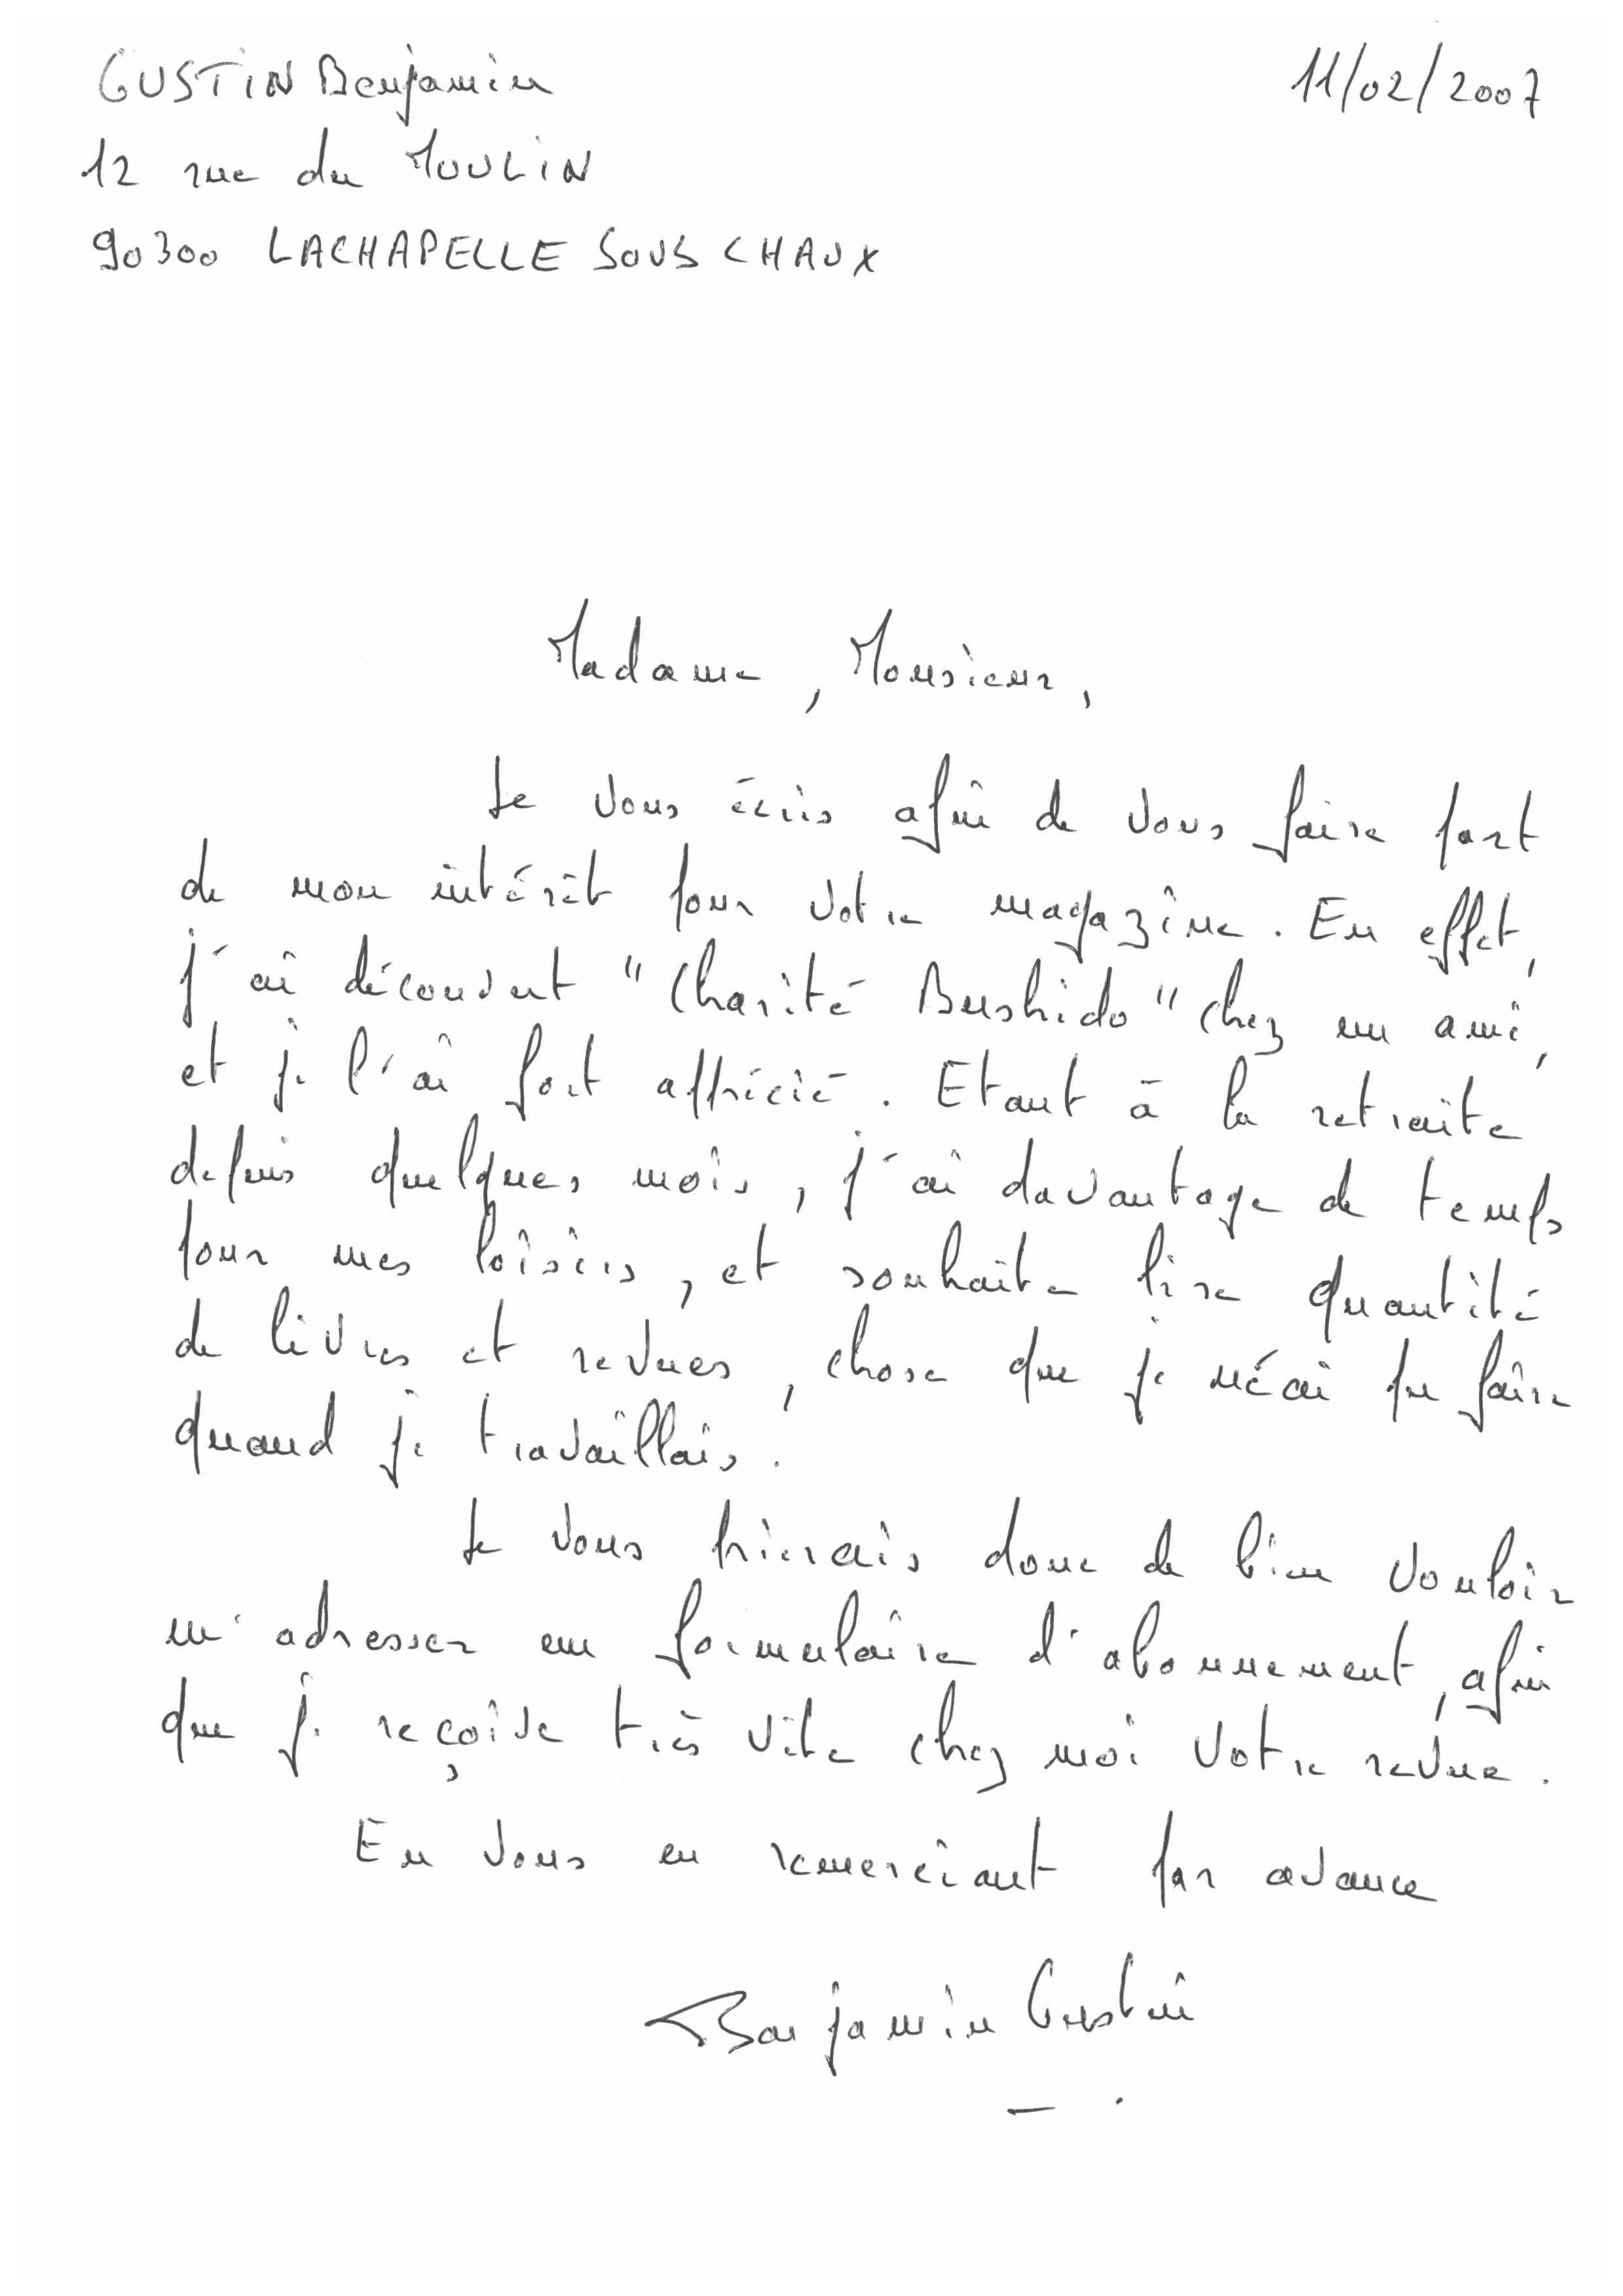 GUSTIN Benjamin
11/02/2007
12 rue du MOULIN
90300 LACHAPELLE SOUS CHAUX
Madame, Monsieur,
Je vous écris afin de vous faire part
de mon intérêt pour votre magazine. En effet,
j'ai découvert "Charité Bushido" chez un ami,
et je l'ai fort apprécié. Etant à la retraite
depuis quelques mois, j'ai davantage de temps
pour mes loisirs, et souhaite lire quantité
de livres et revues, chose que je n'ai pu faire
quand je travaillais.
Je vous prierais donc de bien vouloir
m'adresser un formulaire d'abonnement, afin
que je reçoive très vite chez moi votre revue.
En vous en remerciant par avance
Benjamin Gustin